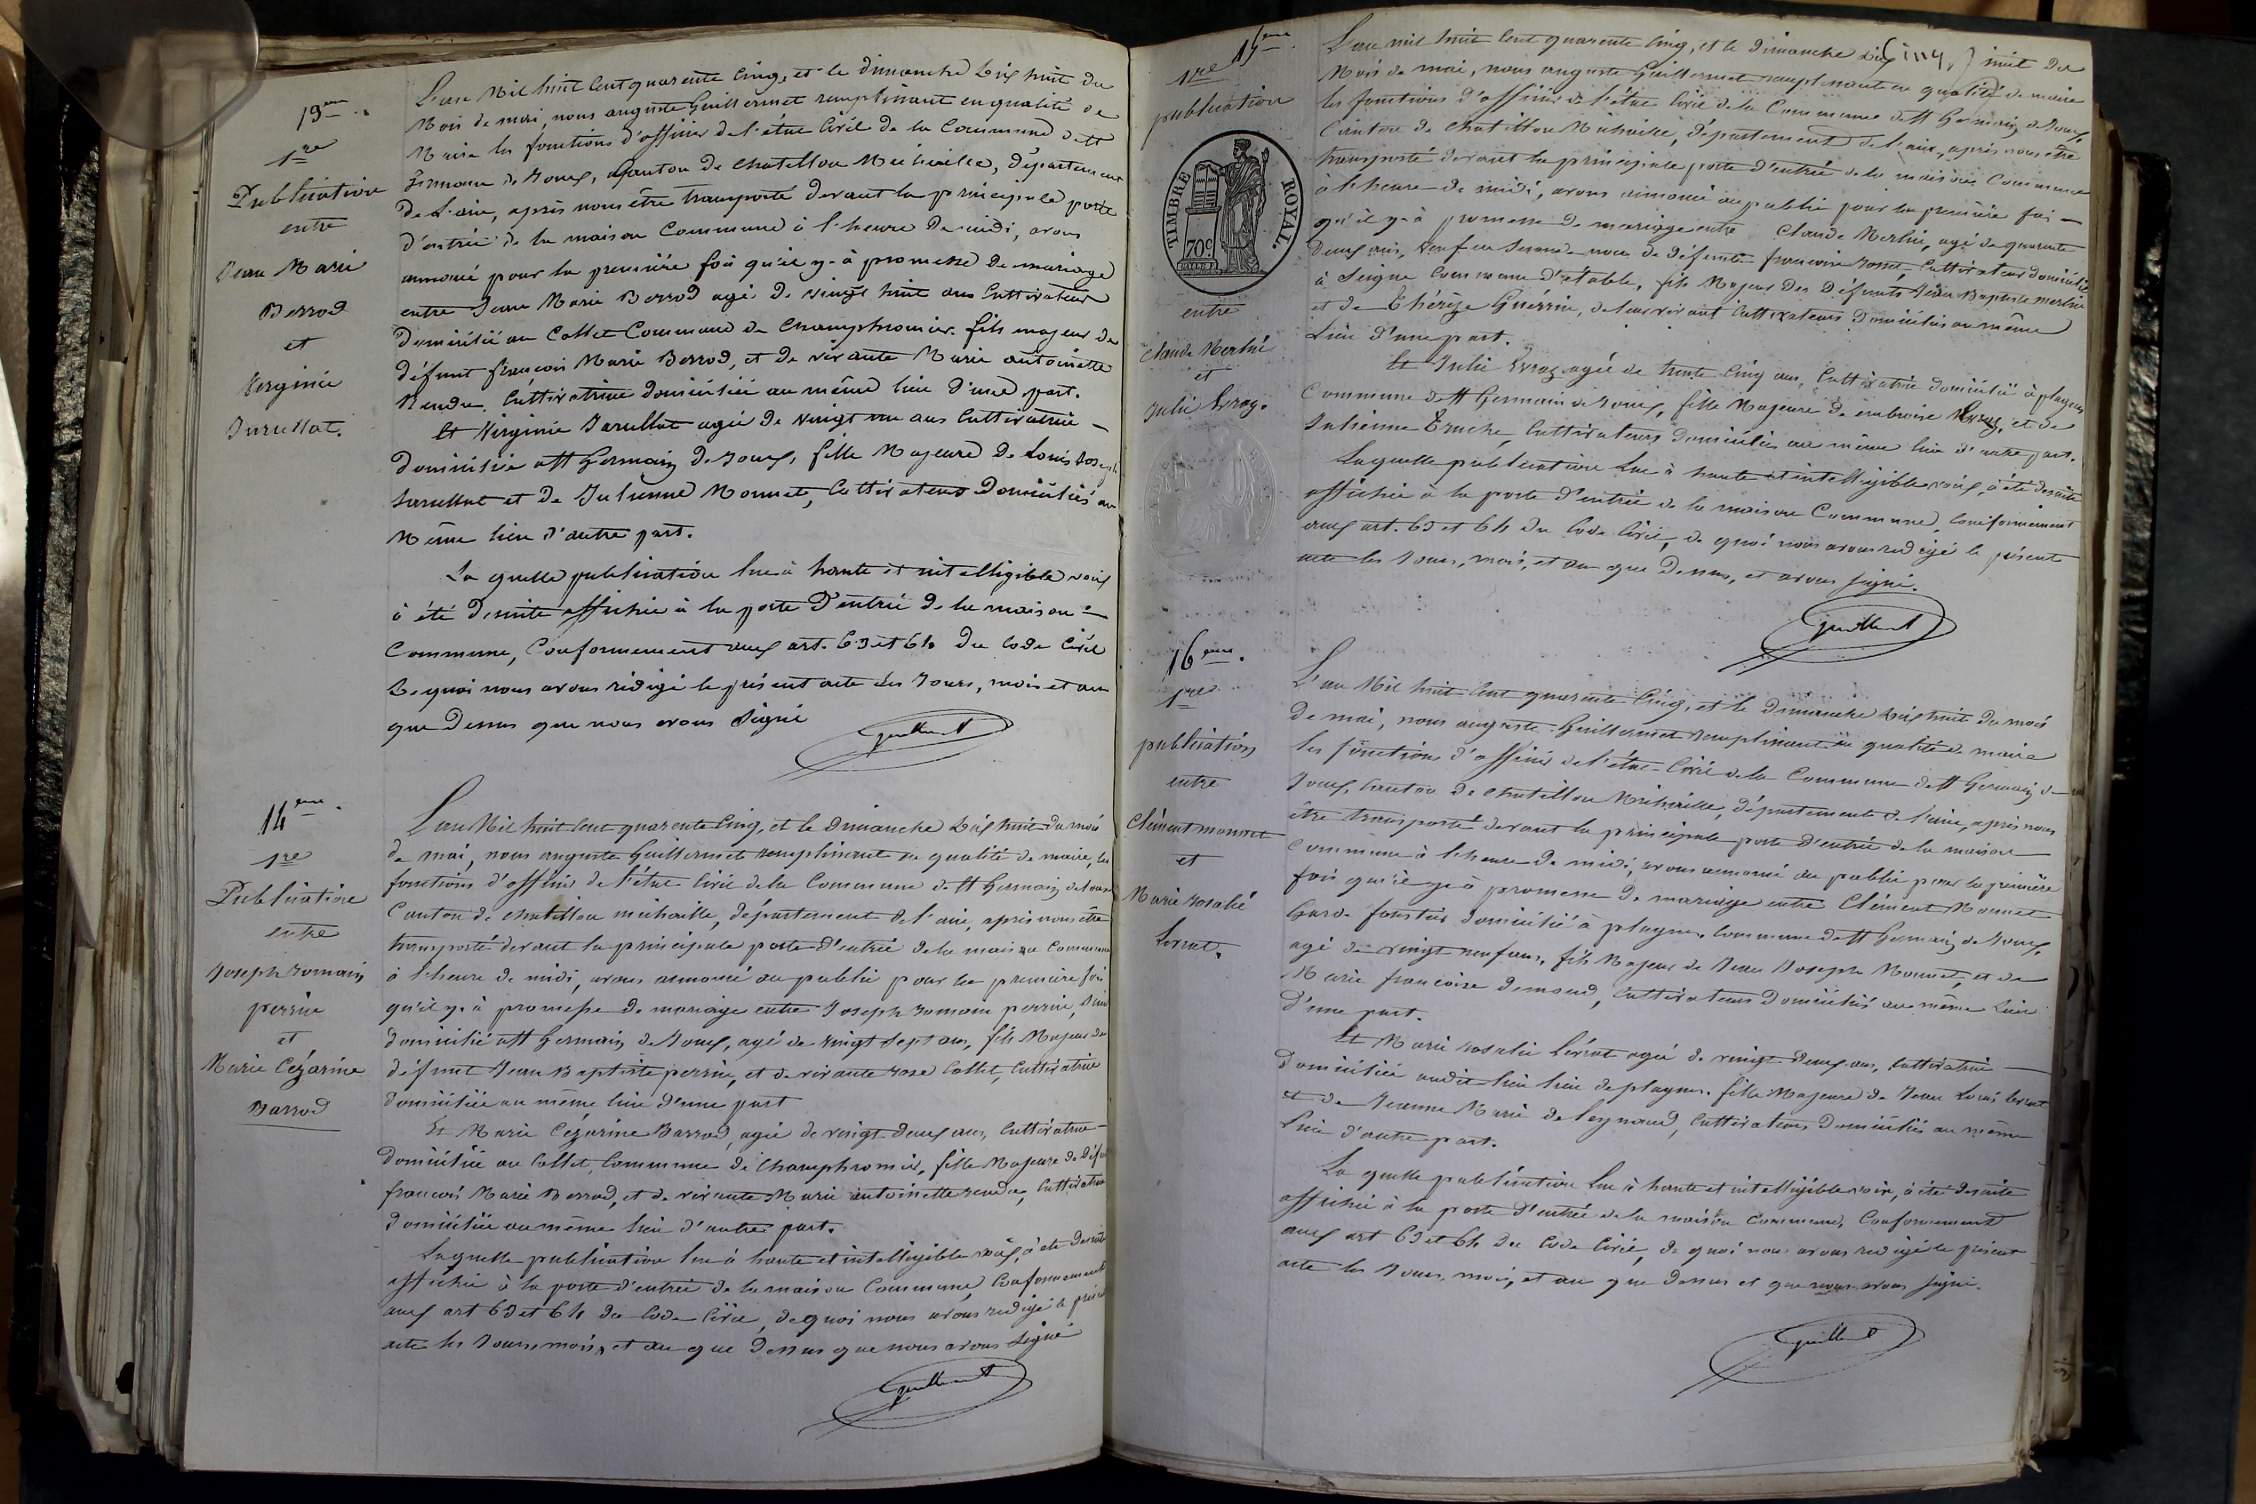 13eme.
1re
Publication
entre
Jean Marie
Berrod
et
Virginie
Jarullat.
L'an Mil huit Cent quarente Cinq, et le dimanche dix huit du
Mois de mai, nous auguste Guillermet remplissant en qualité de
Maire les fonctions d'officier de l'état Civil de la Commune de St
Germain de Joux, Canton de Chatillon Michaille, département
De L'ain, après nous être transporté devant la principale porte
d'entrée de la maison Commune à l'heure De midi, avons
annoncé pour la première fois qu'il y à promesse De mariage
entre Jean Marie Berrod agé De vingt huit ans Cultivateur
Domicilié au Collet Commune de Champfromier. fils majeur de
défunt françois Marie Berrod, et de vivante Marie antoinette
Rendu, Cultivatrice domiciliée au même lieu d'une part.
Et Virginie Jarullat agée De vingt un ans Cultivatrice
domiciliée à St Germain De Joux, fille Majeure De Louis Joseph
Jarullat et De Julienne Monnet, Cultivateurs Domiciliés au
Même lieu d'autre part.
La quelle publication lue à haute et intelligible voix
à été De suite affichée à la porte D'entrée De la maison
Commune, Conformement aux art. 63 et 64 du Code Civil
De quoi nous avons rédigé le présent acte les Jours, mois et an
que Dessus que nous avons signé
Guillermet
14eme.
1re
Publication
entre
Joseph romain
perrin
et
Marie Cézarine
Barrod
L'an Mil huit Cent quarente Cinq, et le dimanche Dix huit du mois
de mai, nous auguste Guillermet remplissant en qualité de maire, les
fonctions d'officier de l'état Civil de la Commune de St Germain de Joux
Canton de Chatillon michaille, département de l'ain, après nous être
transporté devant la principale porte d'entrée de la maison Commune
à l'heure de midi, avons annoncé au public pour la première fois
qu'il y à promesse de mariage entre Joseph romain perrin,
domicilié à St Germain de Joux, agé de vingt sept ans, fils Majeur de
défunt Jean Baptiste perrin, et de vivante rose Collet, Cultivatrice
domiciliée au même lieu d'une part
Et Marie Cézarine Barrod, agée de vingt deux ans, Cultivatrice
Domiciliée au Collet, Commune de Champfromier, fille Majeure de Défunt
françois Marie Berrod, et de vivante Marie antoinette rendu, Cultivatrice
domiciliée au même lieu d'autre part.
Laquelle publication lue à haute et intelligible voix, à été de suite
affichée à la porte d'entrée de la maison Commune, Conformement
aux art 63 et 64 du Code Civil, de quoi nous avons redigé le présent
acte les Jours, mois, et an que Dessus que nous avons signé
Guillermet
15eme.
1re
publication
TIMBRE ROYAL.
70c.
entre
Claude Merlin
et
Julie Evroz.
L'an mil huit Cent quarente Cinq, et le dimanche dix huit du
Mois de mai, nous auguste Guillermet remplissant en qualité de maire
les fonctions d'officier de l'état Civil de la Commune de St Germain de Joux,
Canton de Chatillon Michaille, département de l'ain, après nous être
transporté devant la principale porte d'entrée de la maison Commune
à l'heure de midi, avons annoncé au public pour la première fois
qu'il y à promesse de mariage entre Claude Merlin, agé de quarente
Deux ans, Veuf en Seconde noce de défunte françoise Josset, Cultivateur domicilié
à Seigne Commune d'Etable, fils Majeur Des Défunts Jean Baptiste Merlin
et de Thérèze Guérin, de leur vivant Cultivateurs Domiciliés au même
Lieu d'une part.
Et Julie Evroz agée de trente Cinq ans, Cultivatrice domiciliée à plagnes
Commune de St Germain de Joux, fille Majeure de ambroise Evroz, et de
Julienne Truche, Cultivateurs domiciliés au même lieu d'autre part.
Laquelle publication Lue à haute et intelligible voix, à été de suite
affichée à la porte d'entrée de la maison Commune, Conformement
aux art. 63 et 64 du Code Civil, de quoi nous avons redigé le présent
acte les Jours, mois, et an que Dessus, et avons signé.
Guillermet
16eme.
1re
publication
entre
Clément monnet
et
Marie rosalie
Levrat.
L'an Mil huit Cent quarente Cinq, et le dimanche Dix huit du mois
De mai, nous auguste Guillermet remplissant en qualité de maire
les fonctions d'officier de l'état Civil de la Commune de St Germain de
Joux, Canton de Chatillon Michaille, département de l'ain, après nous
être transporté devant la principale porte d'entrée de la maison
Commune à l'heure De midi, avons annoncé au public pour la première
fois qu'il y à promesse de mariage entre Clément Monnet
Garde forestier domicilié à plagnes, Commune de St Germain de Joux,
agé de vingt neuf ans, fils Majeur de Jean Joseph Monnet, et de
Marie françoise Demond, Cultivateurs Domiciliés au même Lieu
D'une part.
Et Marie rosalie Levrat agée de vingt deux ans, Cultivatrice
Domiciliée audit lieu lieu de plagnes, fille Majeure de Jean Louis Levrat
et de Jeanne Marie de Leynaud, Cultivateurs Domiciliés au même
Lieu d'autre part.
La quelle publication Lue à haute et intelligible voix, à été de suite
affichée à la porte d'entrée de la maison Commune, Conformement
aux art 63 et 64 du Code Civil, de quoi nous avons redigé le présent
acte les Jours, mois, et an que dessus et que nous avons signé.
Guillermet